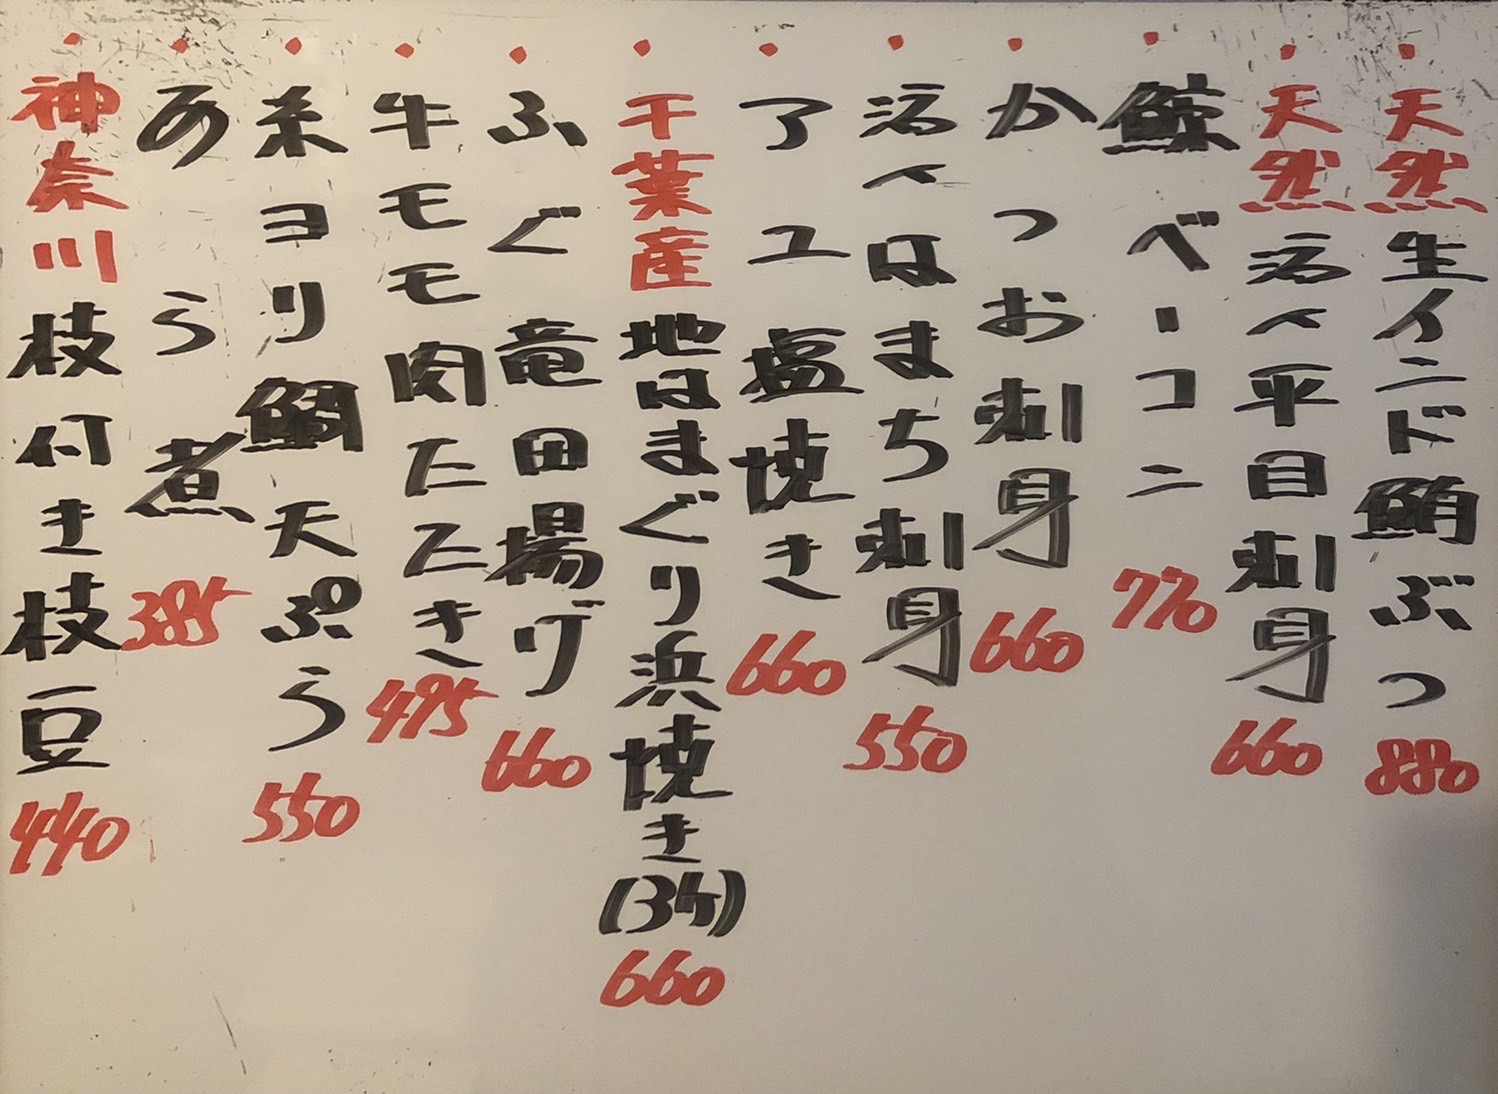 ・天然生インド鮪ぶつ 880
・天然活〆平目刺身 660
・鯨ベーコン 770
・かつお刺身 660
・活〆はまち刺身 550
・アユ塩焼き 660
・千葉産地はまぐり浜焼き(3ケ) 660
・ふぐ竜田揚げ 660
・牛モモ肉たたき 495
・糸ヨリ鯛天ぷら 550
・あら煮 385
・神奈川枝付き枝豆 440